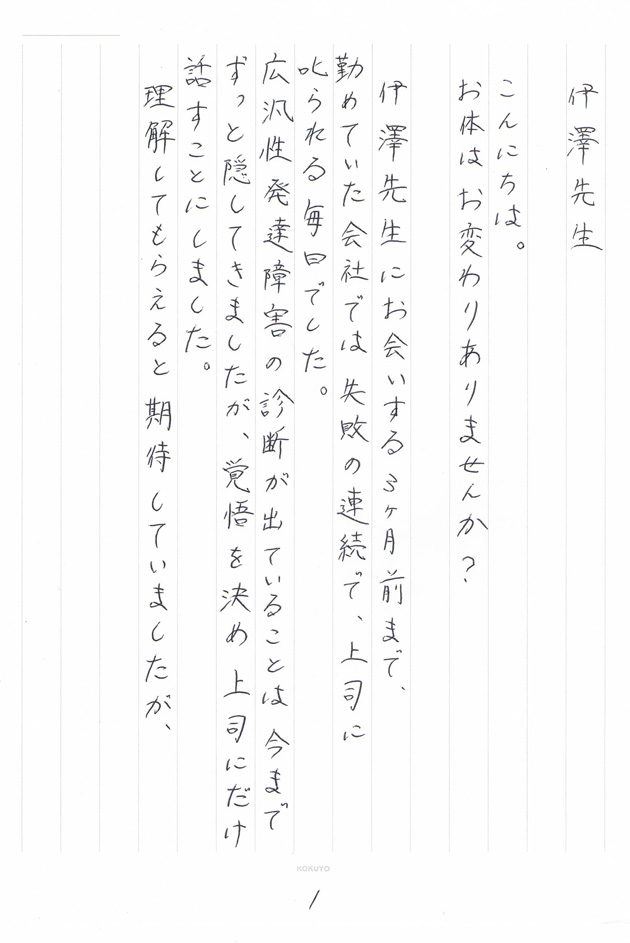 伊澤先生
こんにちは。
お体はお変わりありませんか?
伊澤先生にお会いする3ヶ月前まで、
勤めていた会社では失敗の連続で、上司に
叱られる毎日でした。
広汎性発達障害の診断が出ていることは今まで
ずっと隠してきましたが、覚悟を決め上司にだけ
話すことにしました。
理解してもらえると期待していましたが、
KOKUYO
1